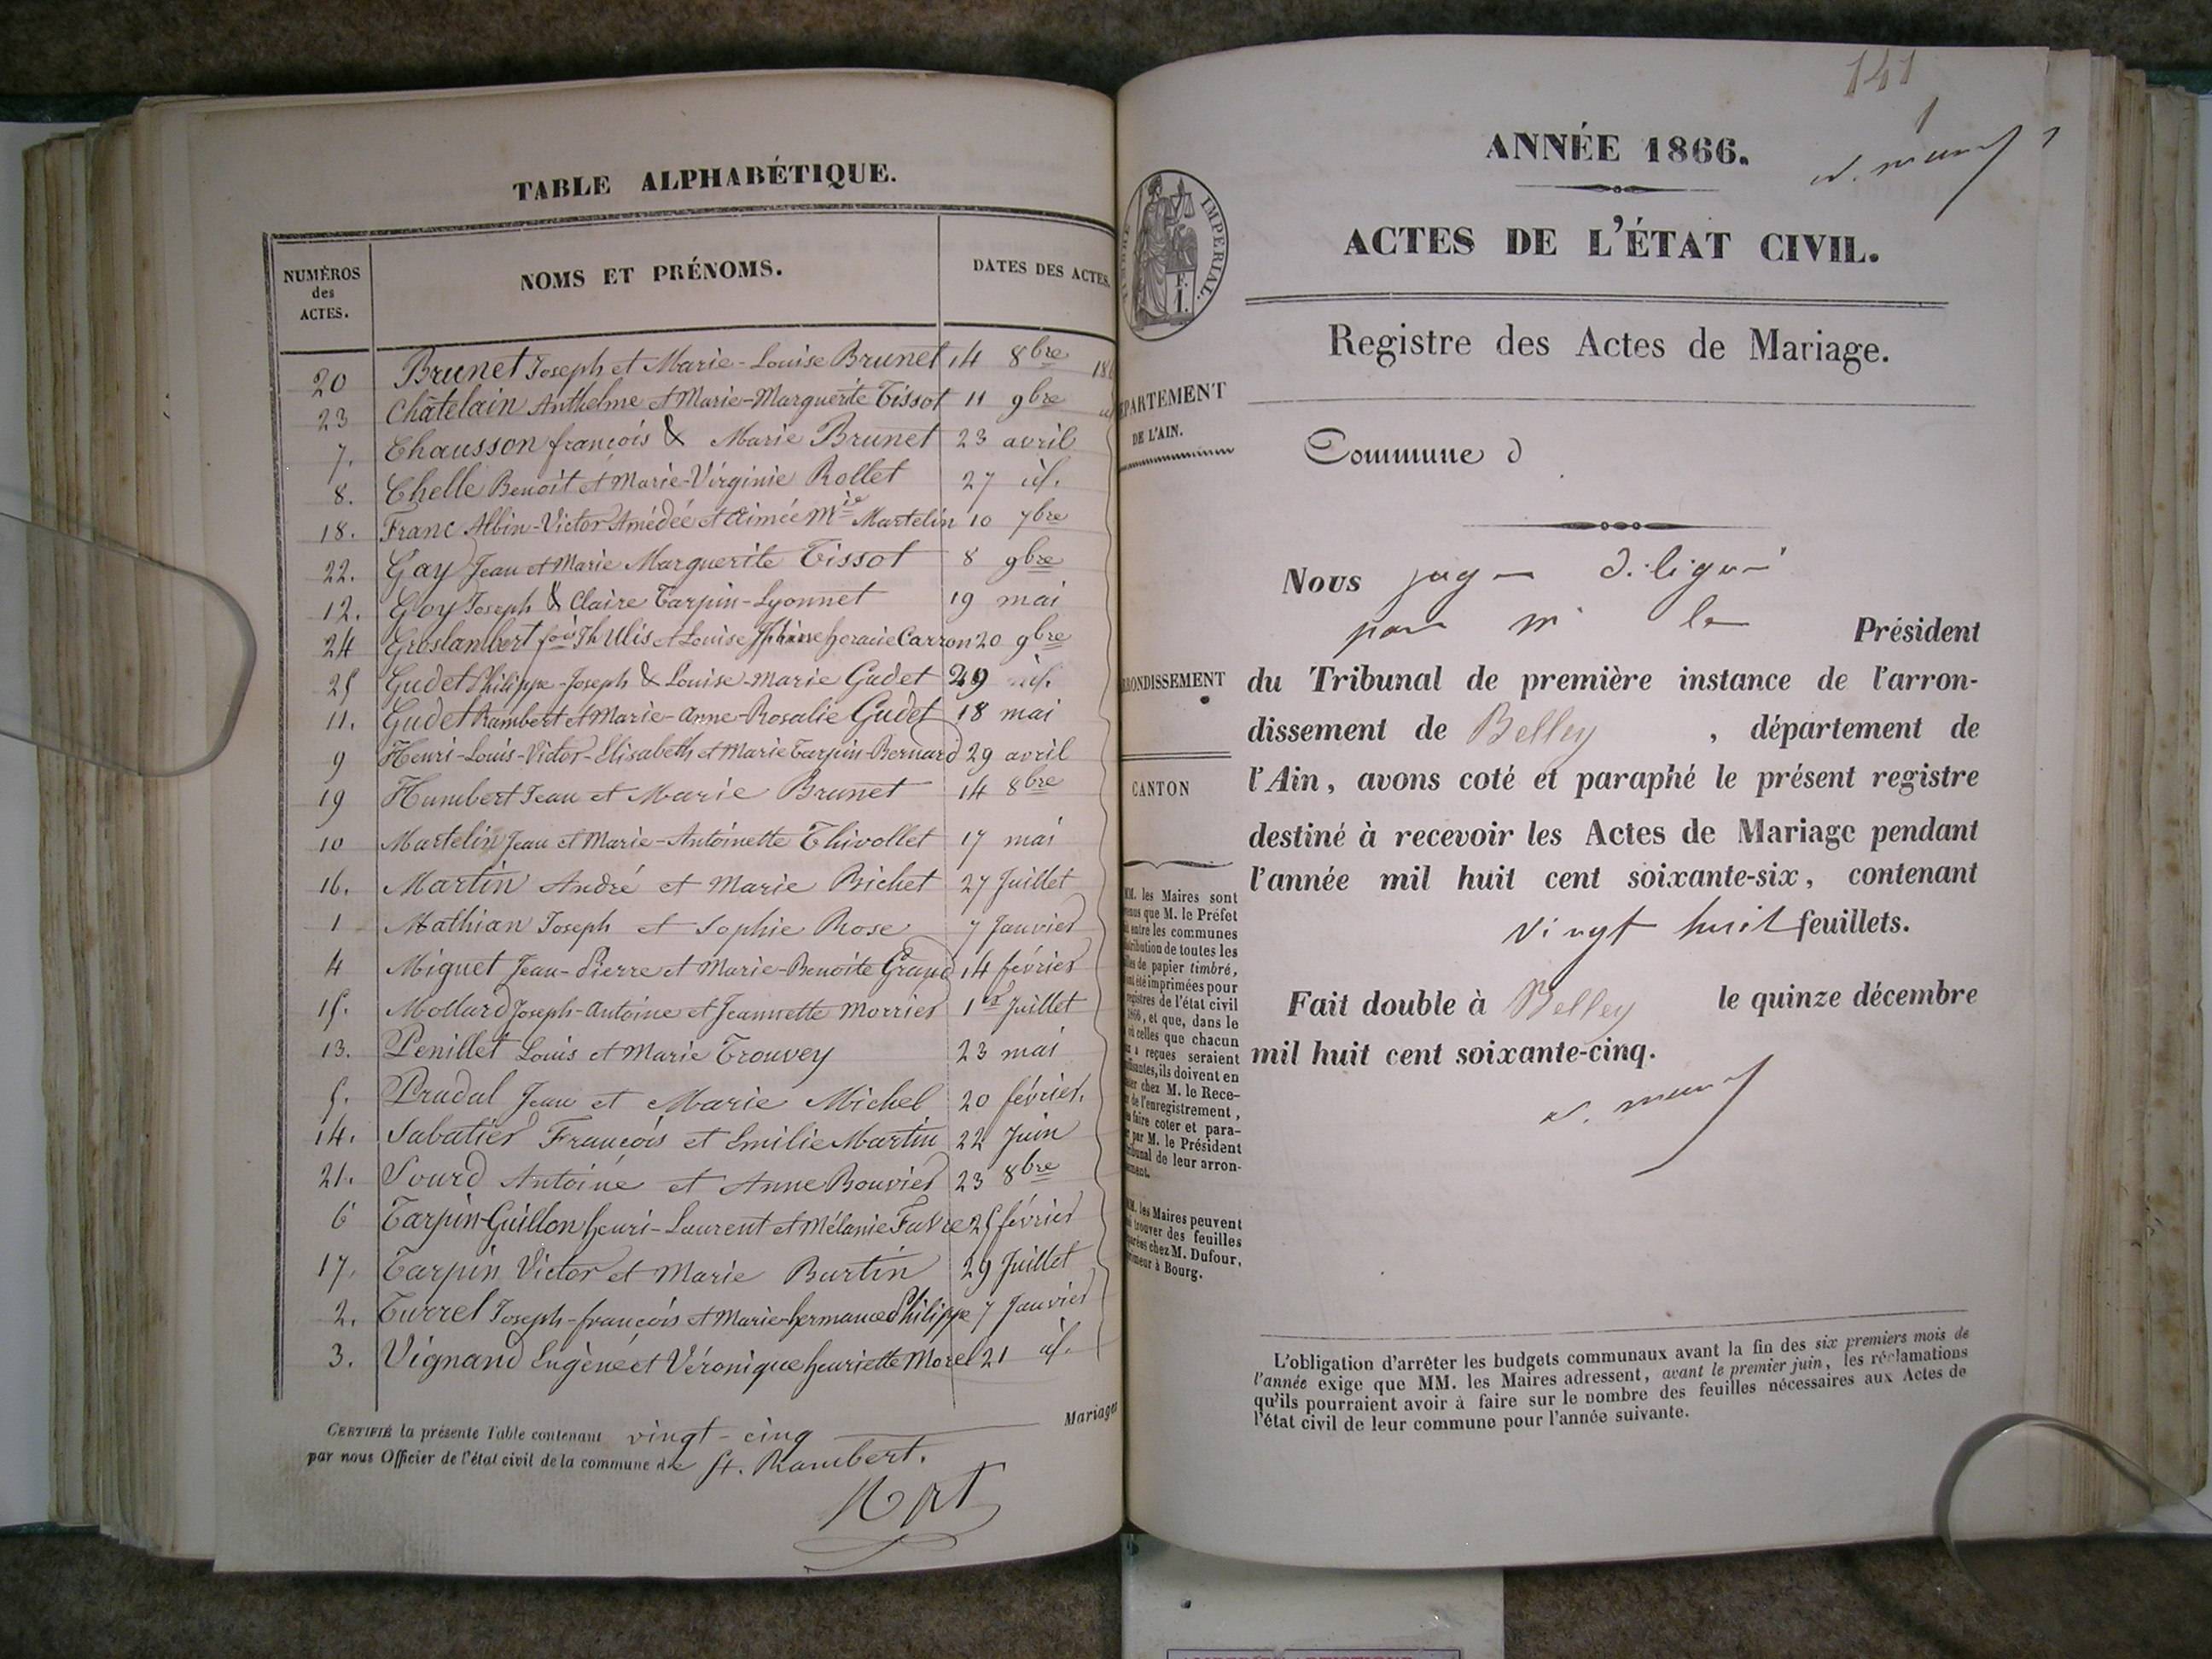 TABLE ALPHABÉTIQUE.
NUMÉROS
des
ACTES.
NOMS ET PRÉNOMS.
DATES DES ACTES.
20 Brunet Joseph et Marie-Louise Brunet 14 8bre
23 Châtelain Anthelme et Marie-Marguerite Tissot 11 9bre
7. Chausson françois & Marie Brunet 23 avril
8. Chelle Benoit et Marie-Virginie Rollet 27 id.
18. Franc Albin-Victor Amédée et Aimée Mie Martelin 10 7bre
22. Gay Jean et Marie Marguerite Tissot 8 9bre
12. Goy Joseph & Claire Tarpin-Lyonnet 19 mai
24 Groslambert fois Th Ulis et Louise Horacie Carron 20 9bre
25 Gudet Philippe-Joseph & Louise-Marie Gudet 29 id.
11. Gudet Rambert et Marie-Anne-Rosalie Gudet 18 mai
9 Henri-Louis-Victor-Elisabeth et Marie Tarpin-Bernard 29 avril
19 Humbert Jean et Marie Brunet 14 8bre
10 Martelin Jean et Marie-Antoinette Thivollet 17 mai
16. Martin André et Marie Bichet 27 Juillet
1 Mathian Joseph et Sophie Rose 7 Janvier
4 Miguet Jean-Pierre et Marie-Benoite Grand 14 février
15. Mollard Joseph-Antoine et Jeannette Morrier 1er Juillet
13. Penillet Louis et Marie Trouvey 23 mai
5. Pradal Jean et Marie Michel 20 février.
14. Sabatier François et Emilie Martin 22 Juin
21. Sourd Antoine et Anne Bouvier 23 8bre
6 Tarpin-Guillon henri-Laurent et Mélanie Favre 25 février
17. Tarpin Victor et Marie Burtin 29 Juillet
2. Turrel Joseph-françois et Marie-hermance Philippe 7 Janvier
3. Vignand Eugène et Véronique henriette Morel 21 id.
CERTIFIÉ la présente Table contenant vingt-cinq Mariages
par nous Officier de l'état civil de la commune de St. Rambert.
141
1
ANNÉE 1866.
ACTES DE L'ÉTAT CIVIL.
IMPERIAL.
Registre des Actes de Mariage.
DÉPARTEMENT
DE L'AIN.
Commune d
Nous juge délégué
par M le Président
ARRONDISSEMENT
du Tribunal de première instance de l'arron-
dissement de Belley, département de
l'Ain, avons coté et paraphé le présent registre
CANTON
destiné à recevoir les Actes de Mariage pendant
l'année mil huit cent soixante-six, contenant
vingt huit feuillets.
Fait double à Belley le quinze décembre
mil huit cent soixante-cinq.
MM. les Maires sont
que M. le Préfet
entre les communes
de toutes les
de papier timbré,
été imprimées pour
registres de l'état civil
1866, et que, dans le
où celles que chacun
a reçues seraient
ils doivent en
chez M. le Rece-
de l'enregistrement,
faire coter et para-
par M. le Président
de leur arron-
MM. les Maires peuvent
trouver des feuilles
chez M. Dufour,
à Bourg.
L'obligation d'arrêter les budgets communaux avant la fin des six premiers mois de
l'année exige que MM. les Maires adressent, avant le premier juin, les réclamations
qu'ils pourraient avoir à faire sur le nombre des feuilles nécessaires aux Actes de
l'état civil de leur commune pour l'année suivante.